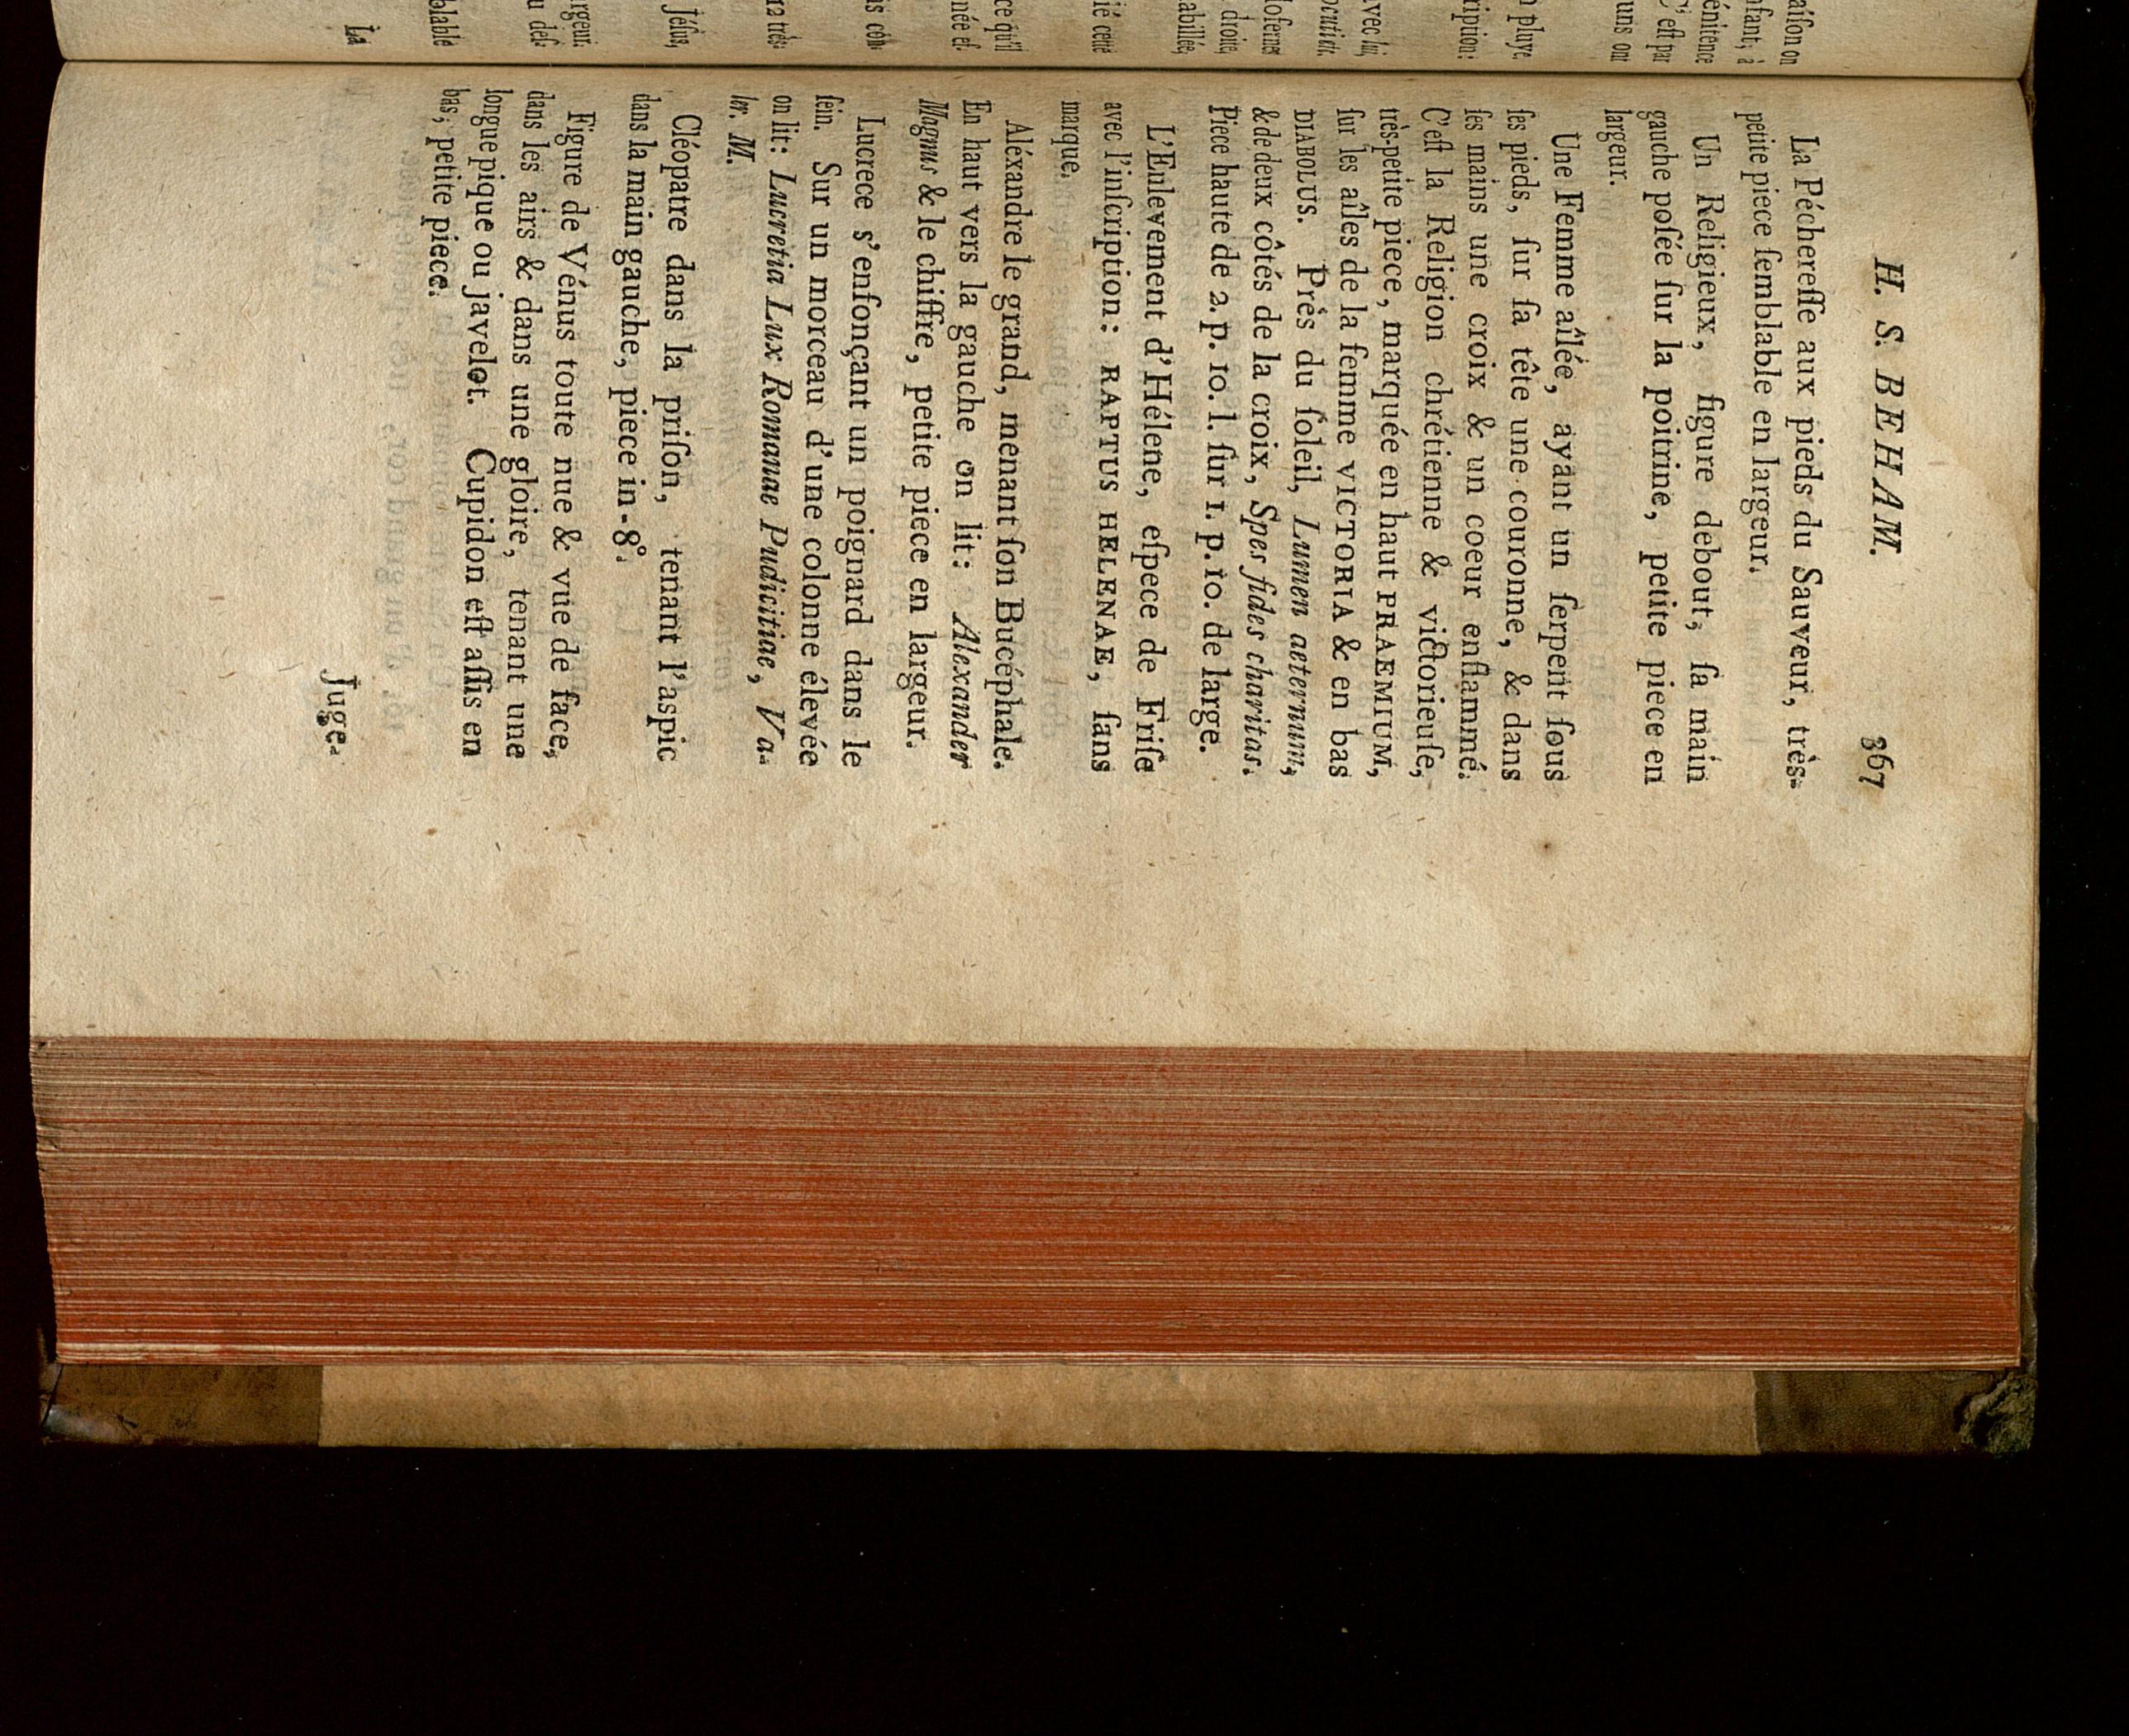 aiſon on
nfant; à
énitence
C'eſt par
uns ont
pluye.
ription:
avec lui,
ocutien.
loferne
droite,
abillée,
ié cette
ce qu'il
née eſ-
is con-
ra très-
Jéſus,
rgeur.
u deſ-
blable
La
H. S. BEHAM. 367
La Péchereſſe aux pieds du Sauveur, très-
petite piece ſemblable en largeur.
Un Religieux, figure debout, ſa main
gauche poſée ſur la poitrine, petite piece en
largeur.
Une Femme aîlée, ayant un ſerpent ſous
ſes pieds, ſur ſa tête une couronne, & dans
ſes mains une croix & un coeur enflammé.
C'eſt la Religion chrétienne & victorieuſe,
très-petite piece, marquée en haut PRAEMIUM,
ſur les aîles de la femme VICTORIA & en bas
DIABOLUS. Près du ſoleil, Lumen aeternum,
& de deux côtés de la croix, Spes fides charitas.
Piece haute de 2. p. 10. l. ſur 1. p. 10. de large.
L'Enlevement d'Hélene, eſpece de Friſe
avec l'inſcription: RAPTUS HELENAE, ſans
marque.
Aléxandre le grand, menant ſon Bucéphale.
En haut vers la gauche on lit: Alexander
Magnus & le chiffre, petite piece en largeur.
Lucrece s'enfonçant un poignard dans le
ſein. Sur un morceau d'une colonne élevée
on lit: Lucretia Lux Romanae Pudicitiae, Va-
ler. M.
Cléopatre dans la priſon, tenant l'aspic
dans la main gauche, piece in-8°.
Figure de Vénus toute nue & vue de face,
dans les airs & dans une gloire, tenant une
longue pique ou javelot. Cupidon eſt aſſis en
bas; petite piece.
Juge-